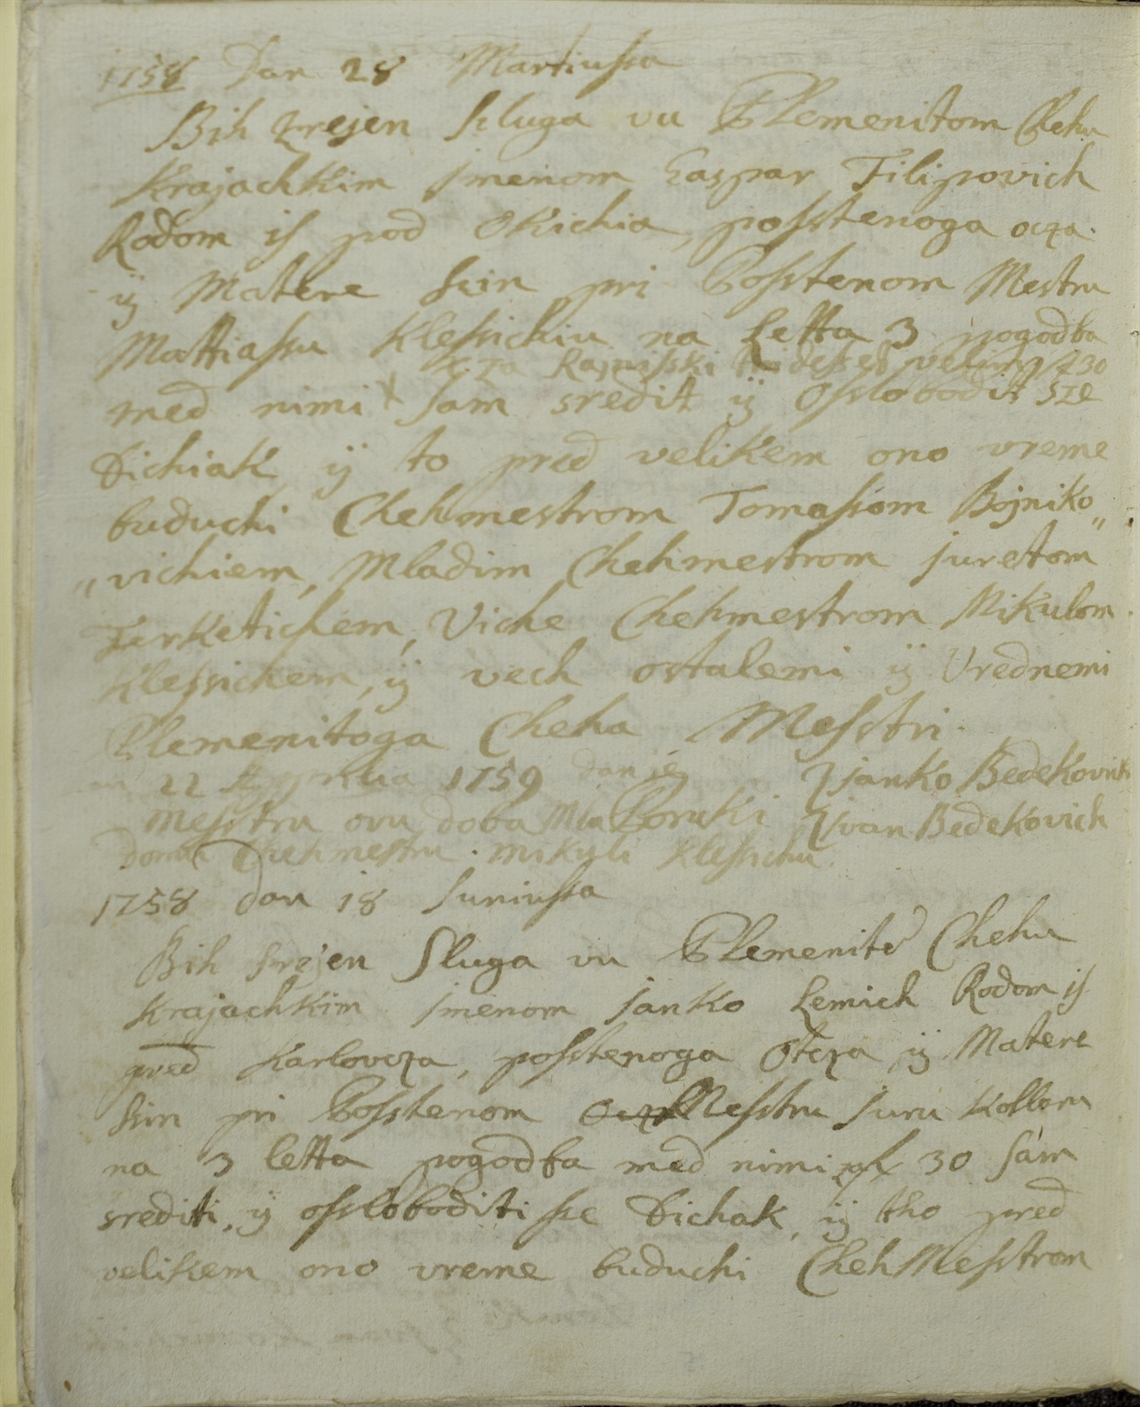 1758 Dan 28 Martiussa
Bih zrejen szluga vu Plemenitom Chehu
Krajachkim jmenom Gaspar Filipovich
Rodom is pod Okichia, posstenoga ocza
ÿ Matere szin pri Posstenom Mestru
Mattiassu Klessichiu na Letta 3 pogodba
za Rajnisski
med nimi sam sredit ÿ osslobodit sze
Dichiak ÿ to pred velikem ono vreme
buduchi Chehmestrom Tomassom Bojniko„
„vichiem, Mladim Chehmestrom juretom
Ferketichem, Viche Chehmestrom Mikulom
Klessichem, ÿ vech ostalemi ÿ Vrednemi
Plemenitoga Cheha Messtri.
22 1759 dan je Janko Bedekovich
Messtru ovu doba Mla Poruki Ivan Bedekovich
domu Chehmestru. Mikuli Klessichu
1758 dan 18 Juniussa
Bih srejen Sluga vu Plemenito Chehu
Krajachkim jmenom Janko Lemich Rodom is
pred Karlovcza, posstenoga Otcza ÿ Matere
szin pri Posstenom Messtru Juru Kolleru
na 3 letta pogodba med nimi 30 sam
srediti, ÿ ossloboditi sze Dichak, ÿ tho pred
velikem ono vreme buduchi ChehMesstrom